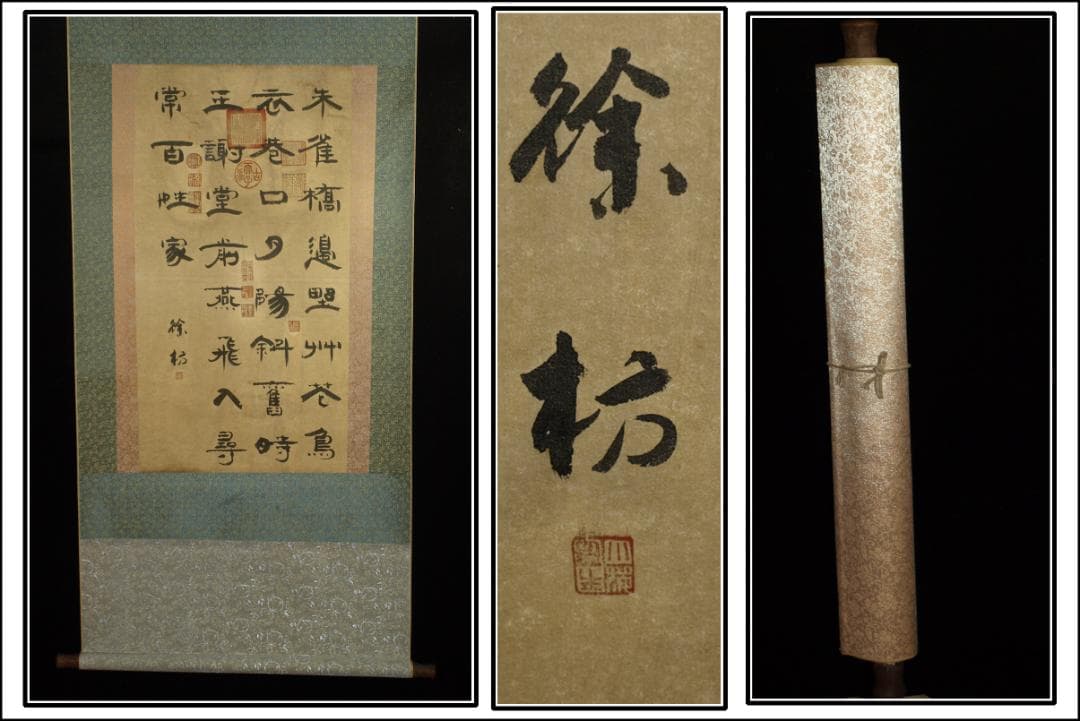 朱雀橋邊野艸花烏
衣巷口夕陽斜舊時
王謝堂前燕飛入尋
常百姓家
徐枋
徐枋